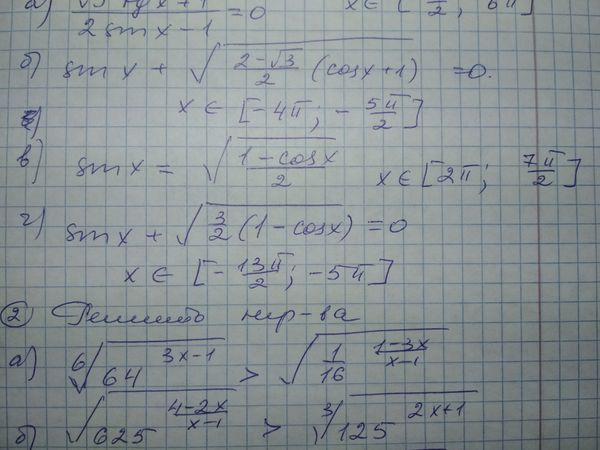 а) (√3 tgx + 1)/(2sinx − 1) = 0 x ∈ [π/2; 6π]
б) sinx + √((2−√3)/2 (cosx+1)) = 0.
x ∈ [−4π; −5π/2]
в) sinx = √((1−cosx)/2) x ∈ [2π; 7π/2]
г) sinx + √(3/2 (1−cosx)) = 0
x ∈ [−13π/2; −5π]
② Решить нер-ва
а) ⁶√(64^(3x−1)) > √((1/16)^((1−3x)/(x−1)))
б) √(625^((4−2x)/(x−1))) > ³√(125^(2x+1))